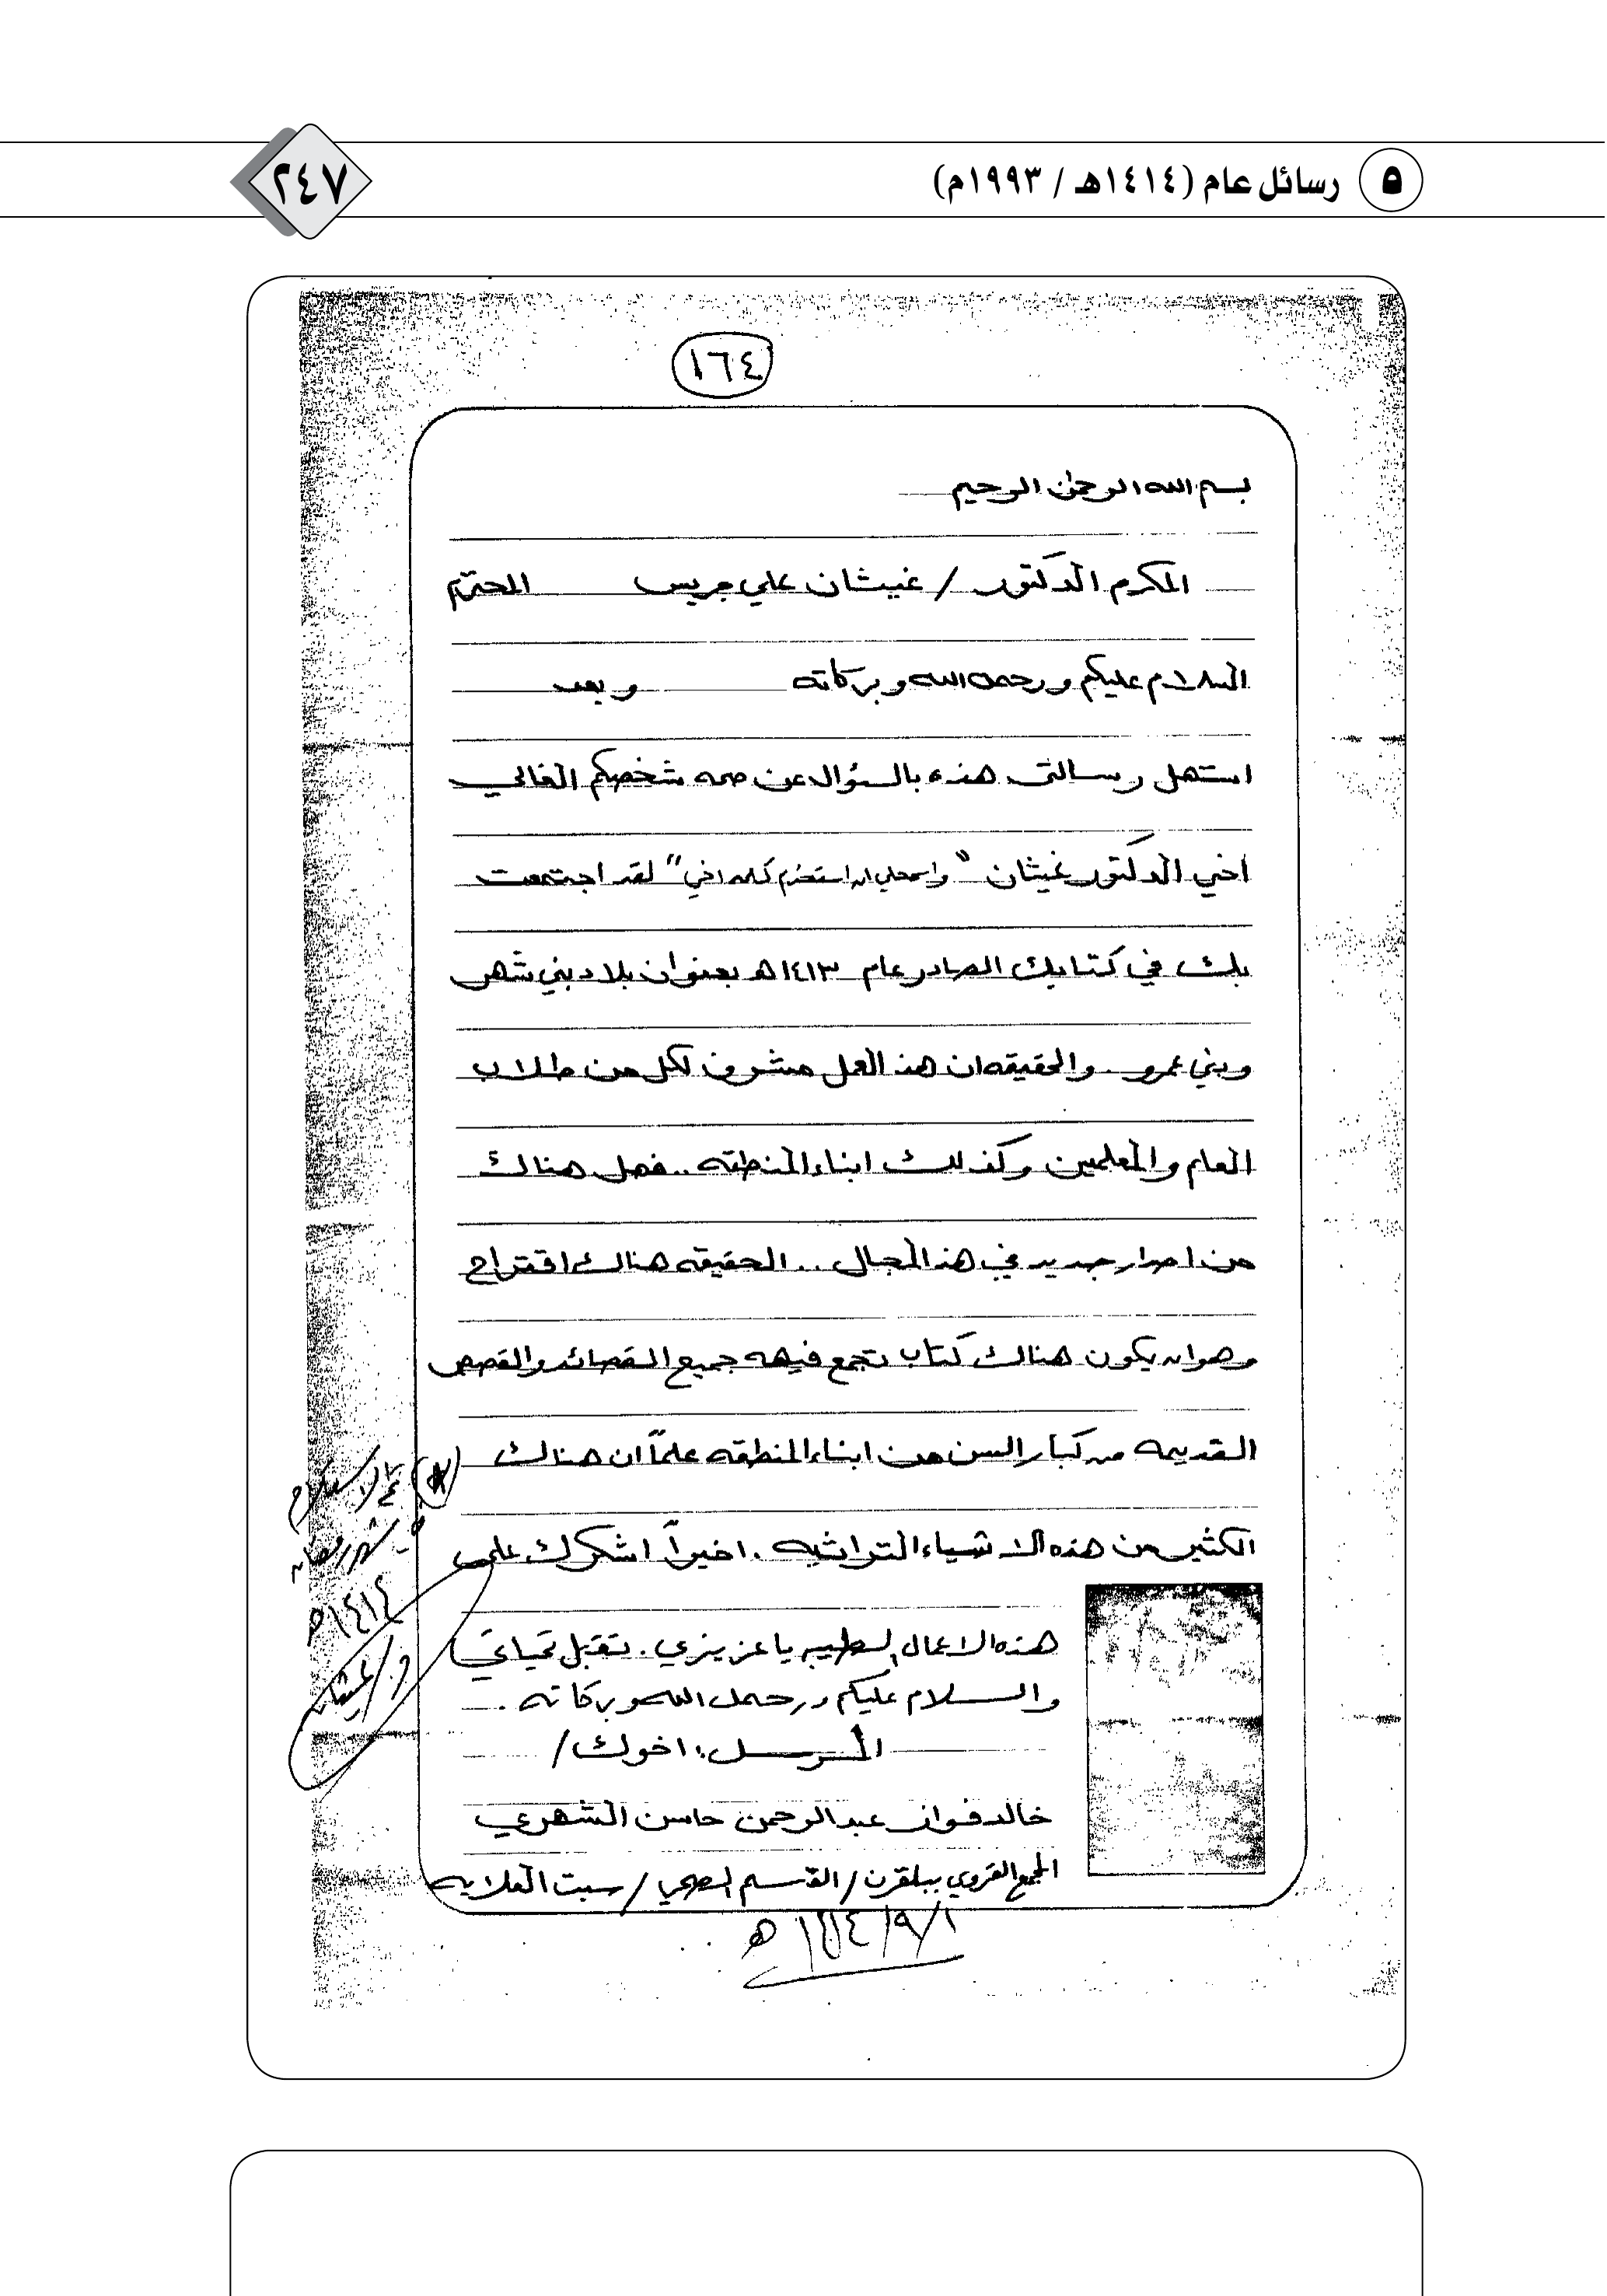 ٥ رسائل عام (١٤١٤هـ / ١٩٩٣م)
٢٤٧
١٦٤
بسم الله الرحمن الرحيم
المكرم الدكتور / غيثان علي جريس المحترم
السلام عليكم ورحمه الله وبركاته وبعد
استهل رسالتي هذه بالسؤال عن صحه شخصكم الغالي
أخي الدكتور غيثان " واسمحلي ان استخدم كلمه اخي " لقد اجتمعت
بك في كتابك الصادر عام ١٤١٣ه بعنوان بلاد بني شهر
وبني عمرو . والحقيقه ان هذ العمل مشرف لكل من طلاب
العام والمعلمين وكذلك ابناء المنطقه .. فهل هنالك
من اصدار جديد في هذ المجال .. الحقيقه هنالك اقتراح
وهو ان يكون هنالك كتاب تجمع فيهه جميع القصائد والقصص
القديمه من كبار السن من ابناء المنطقه علماً ان هنالك
الكثير من هذه الاشياء التراثيه . اخيراً اشكرك على
هذه الاعمال الطيبه يا عزيزي . تقبل تحياتي
والسلام عليكم ورحمه الله وبركاته .
المرسل : اخوك /
خالد فواز عبدالرحمن حاسن الشهري
المجمع القروي ببلقرن / القسم الصحي / سبت العلايه
١ / ٩ / ١٤١٤ ه
تم الاستلام
في شهر رمضان
١٤١٤ه
د / غيثان